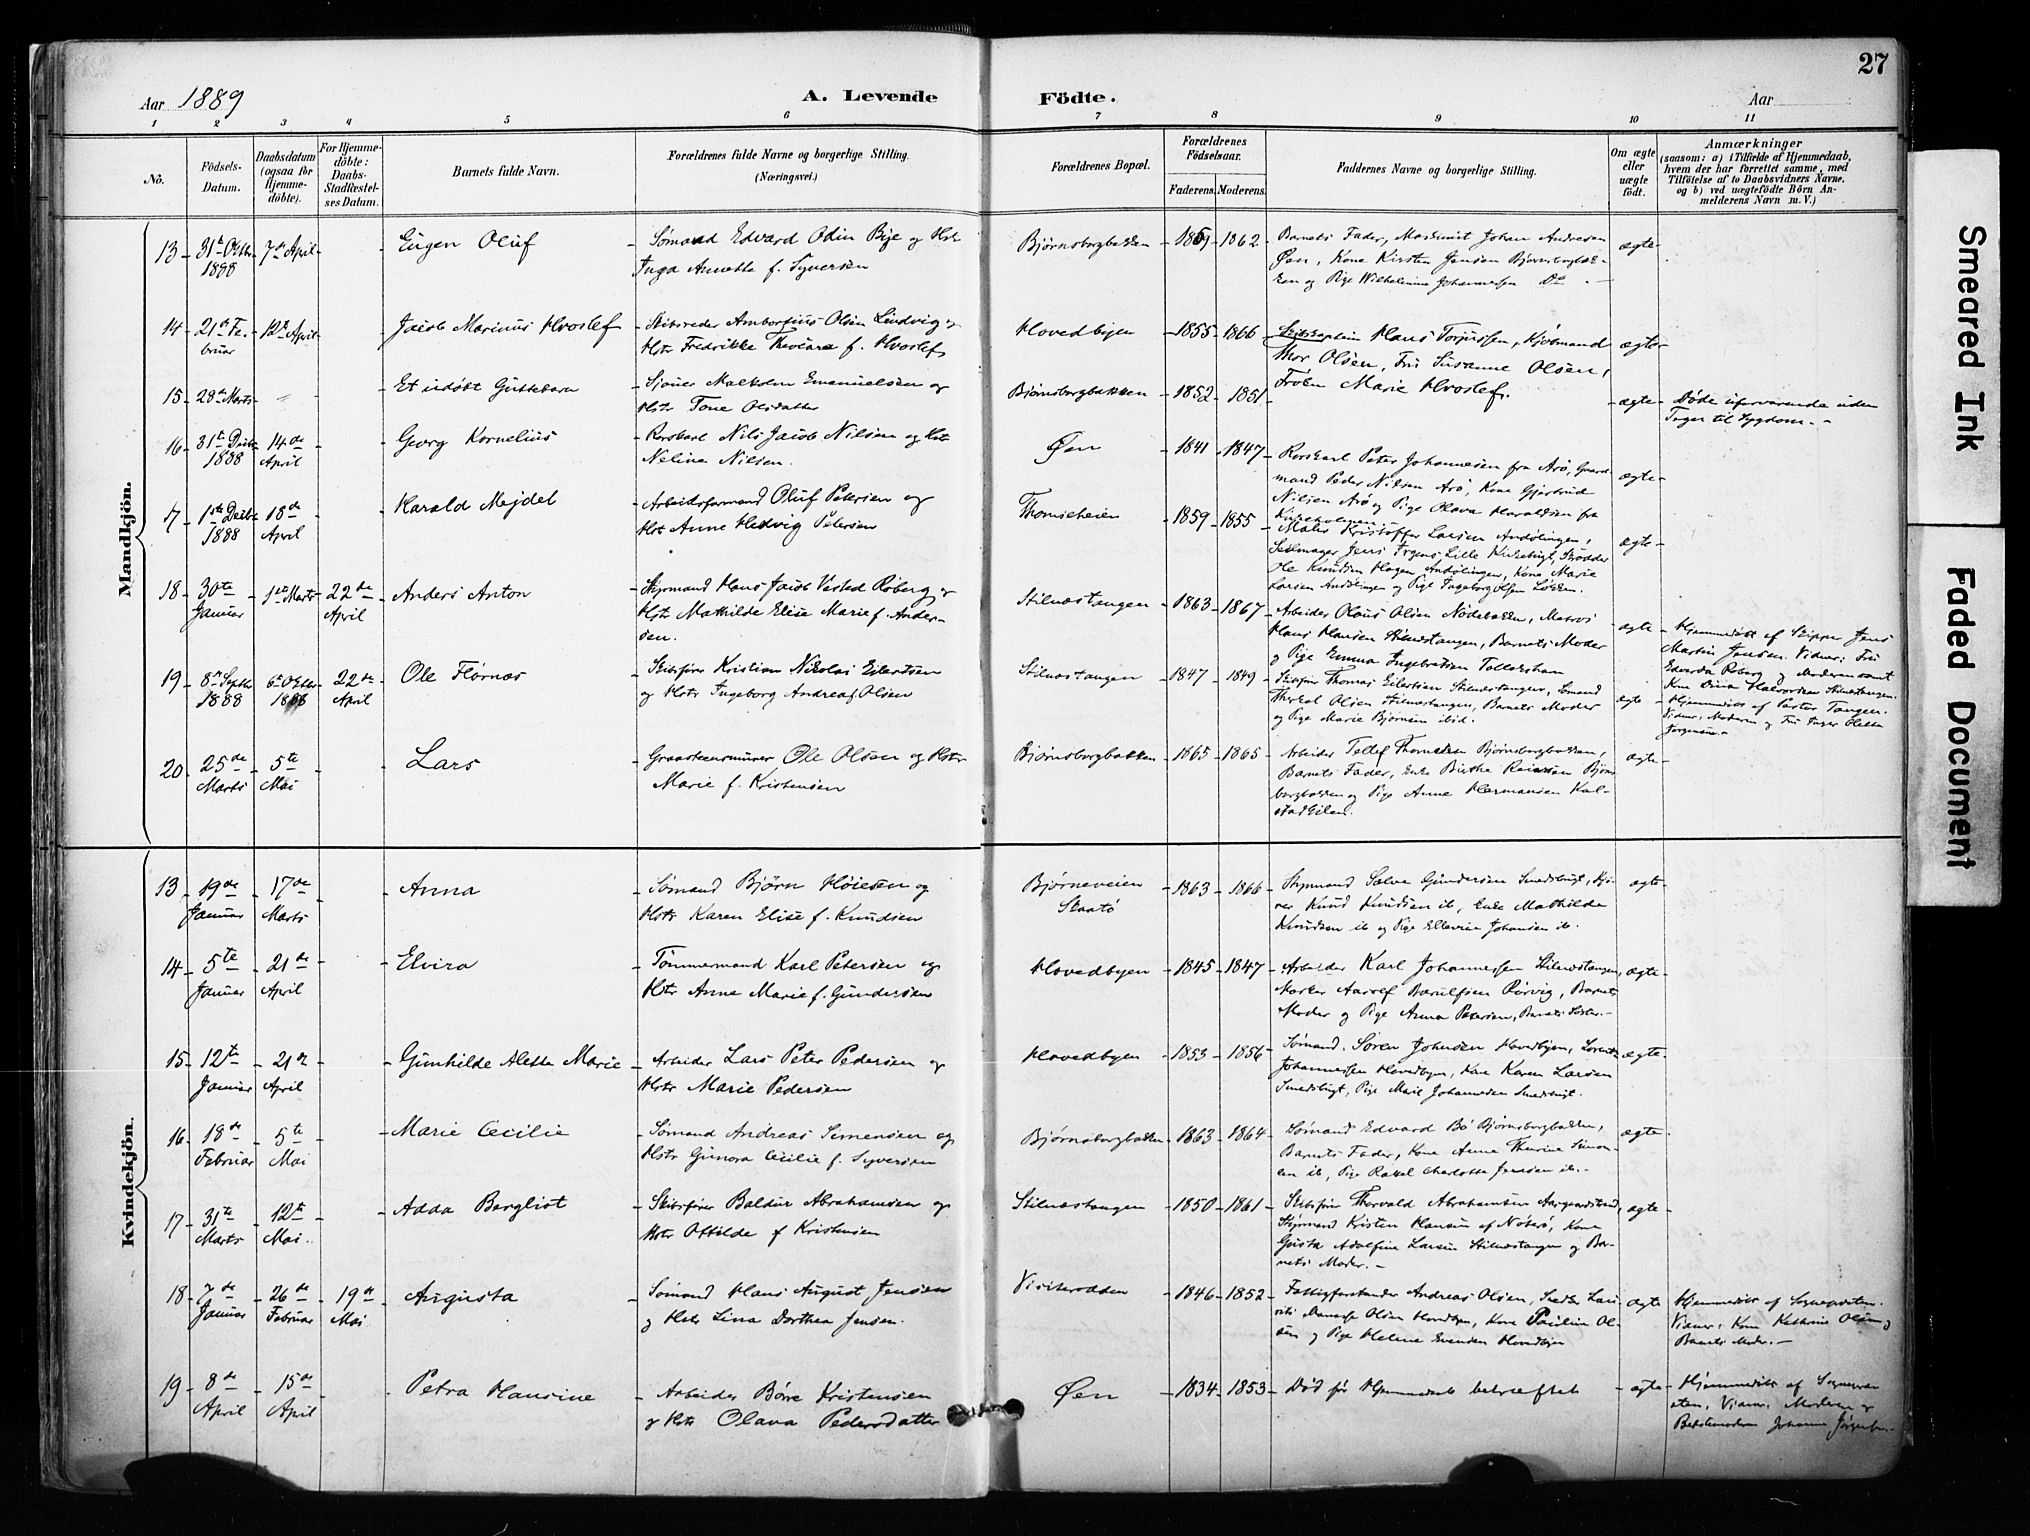 27
Aar 1889
A. Levende Födte.
Aar
1 2 3 4 5 6 7 8 9 10 11
No.
Födsels-Datum.
Daabsdatum (ogsaa for Hjemme-döbte).
For Hjemme-döbte: Daabs-Stadfæstel-ses Datum.
Barnets fulde Navn.
Forældrenes fulde Navne og borgerlige Stilling. (Næringsvei.)
Forældrenes Bopæl.
Forældrenes Födselsaar.
Faderens. Moderens.
Faddernes Navne og borgerlige Stilling.
Om ægte eller uægte födt.
Anmærkninger
(saasom: a) i Tilfælde af Hjemmedaab, hvem der har forrettet samme, med Tilföielse af to Daabsvidners Navne. og b) ved uægtefödte Börn An-melderens Navn m. V.)
Mandkjön.
13 31te Octbr 1888 7de April Eugen Oluf
Sømand Edvard Odin Bye og Hstr Inga Annette f. Syversen
Bjørnsborgbakken 1862
Barnets Fader, Maskinist Johan Andresen Øen, Kone Kirsten Jensen og Pige Wilhelmine Johannessen Do
ægte
14 21de Februar 12te April Jacob Marinus Hvoslef
Skibsreder Ambortius Olsen Lindvig og Hstr Fredrikke f. Hvoslef
Hovedbyen 1855 1866
Hans Torjussen, Kjøbmand Thor Olsen, Fru Susanne Olsen, Frøken Marie Hvoslef.
ægte
15 28de Marts Et udøbt Guttebarn
Emanuelsen og Hstr Tone Olsdatter
Bjørnsborgbakken 1852 1851
ægte
Døde uforvarende uden Tegn til Sygdom.
16 31te Decbr 1888 14de April Georg Kornelius
Rorskarl Nils Jacob Nilsen og Hstr Neline Nilsen.
Øen 1841 1847
Rorskarl Peter Johannesen fra Arø, Gaardmand Peder Nilsen Arø, Kone Gjertrud Nilsen Arø og Pige Olava Haraldsen fra
ægte
17 1ste Decbr 1888 18de April Harald Mejdel
Arbeidsformand Oluf Petersen og Hstr Anne Hedvig Petersen
Thomeheien 1859 1855
Maler Kristoffer Larsen Andølingen, Seilmager Jens Lille Kirkebugt, Skrædder Ole Knudsen Hagen Andølingen, Kone Marie Larsen Andølingen og Pige Ingeborg Olsen
ægte
18 30te Januar 1ste Marts 22de April Anders Anton
Styrmand Hans Jacob Vested Roberg og Hstr Mathilde Elise Marie f. Andersen.
Stilnæstangen 1863 1867
Arbeider Olaus Olsen Matros Hans Hansen Stilnæstangen, Barnets Moder og Pige Emma Ingebretsen
ægte
Hjemmedøbt af Skipper Jens Martin Jensen. Vidner: Fru Edvarda Roberg og Moderen samt Kone Dina Halvorsen Stilnæstangen.
19 8de Septbr 1888 6te Octbr 1888 22de April Ole Flørnæs
Skibsfører Kristian Nikolai Eilertsen og Hstr Ingeborg Andrea f. Olsen
Stilnæstangen 1847 1849
Skibsfør. Thomas Eilertsen Stilnæstangen, Sømand Therkel Olsen Stilnæstangen, Barnets Moder og Pige Marie Bjørnsen ibid.
ægte
Hjemmedøbt af Pastor Tangen. Vidner: Moderen og Fru Inger Olette Jørgensen
20 25de Marts 5te Mai Lars
Graasteensmurer Ole Olsen og Hstr Marie f. Kristensen
Bjørnsborgbakken 1865 1865
Arbeider Tellef Thomesen Bjørnsborgbakken, Barnets Fader, Enke Birthe Reiersen Bjørnsborgbakken og Pige Anne Hermansen Kalstadkilen.
ægte
Kvindekjön.
13 19de Januar 17de Marts Anna
Sømand Bjørn Høiesen og Hstr Karen Elise f. Knudsen
Bjørneveien Skaatø 1863 1866
Styrmand Salve Gundersen Smedsbugt, Knud Knudsen ib, Enke Mathilde Knudsen ib og Pige Ellevine Johansen ib.
ægte
14 5te Januar 21de April Elvira
Tømmermand Karl Petersen og Hstr Anne Marie f. Gundersen
Hovedbyen 1845 1847
Arbeider Karl Johannessen Stilnæstangen, Barnets Moder og Pige Anna Petersen, Barnets Søster.
ægte
15 12te Januar 21de April Gunhilde Alette Marie
Arbeider Lars Peter Pedersen og Hstr Marie Pedersen
Hovedbyen 1853 1856
Sømand Søren Johnsen Hovedbyen, Lorentz Johannessen Hovedbyen, Kone Karen Larsen Smedsbugt, Pige Marie Johannesen Smedsbugt.
ægte
16 18de Februar 5te Mai Marie Cecilie
Sømand Andreas Simensen og Hstr Gunora Cecilie f. Syversen
Bjørnsborgbakken 1863 1864
Sømand Edvard Bø Bjørnsborgbakken, Barnets Fader, Kone Anne Therine Simonsen ib, Pige Rakel Charlotte Jensen ib.
ægte
17 31te Marts 12te Mai Adda Bergliot
Skibsfører Baldur Abrahamsen og Hstr Ottilde f Kristensen
Stilnæstangen 1850 1861
Skibsfør Thorvald Abrahamsen Styrmand Kisten Hansen af Nøterø, Kone Gusta Adolfine Larsen Stilnæstangen og Barnets Moder.
ægte
18 7de Januar 26de Februar 19de Mai Augusta
Sømand Hans August Jensen og Hstr Lina Dorthea Jensen.
1846 1852
Fattigforstander Andreas Olsen, Olsen Hovedbyen, Kone Pauline Olsen og Pige Helene Evensen Hovedbyen
ægte
Hjemmedøbt af Sognepræsten. Vidner: Kone Kathrine Olsen og Barnets Moder.
19 8de April 15de April Petra Hansine
Arbeider Børre Kristensen og Hstr Olava Pedersdatter
Øen 1834 1853
Død før Hjemmedaab bekræftet
ægte
Hjemmedøbt af Sognepræsten, Vidner: Moderen og Bedstemoderen Johanne
Smeared Ink
Faded Document